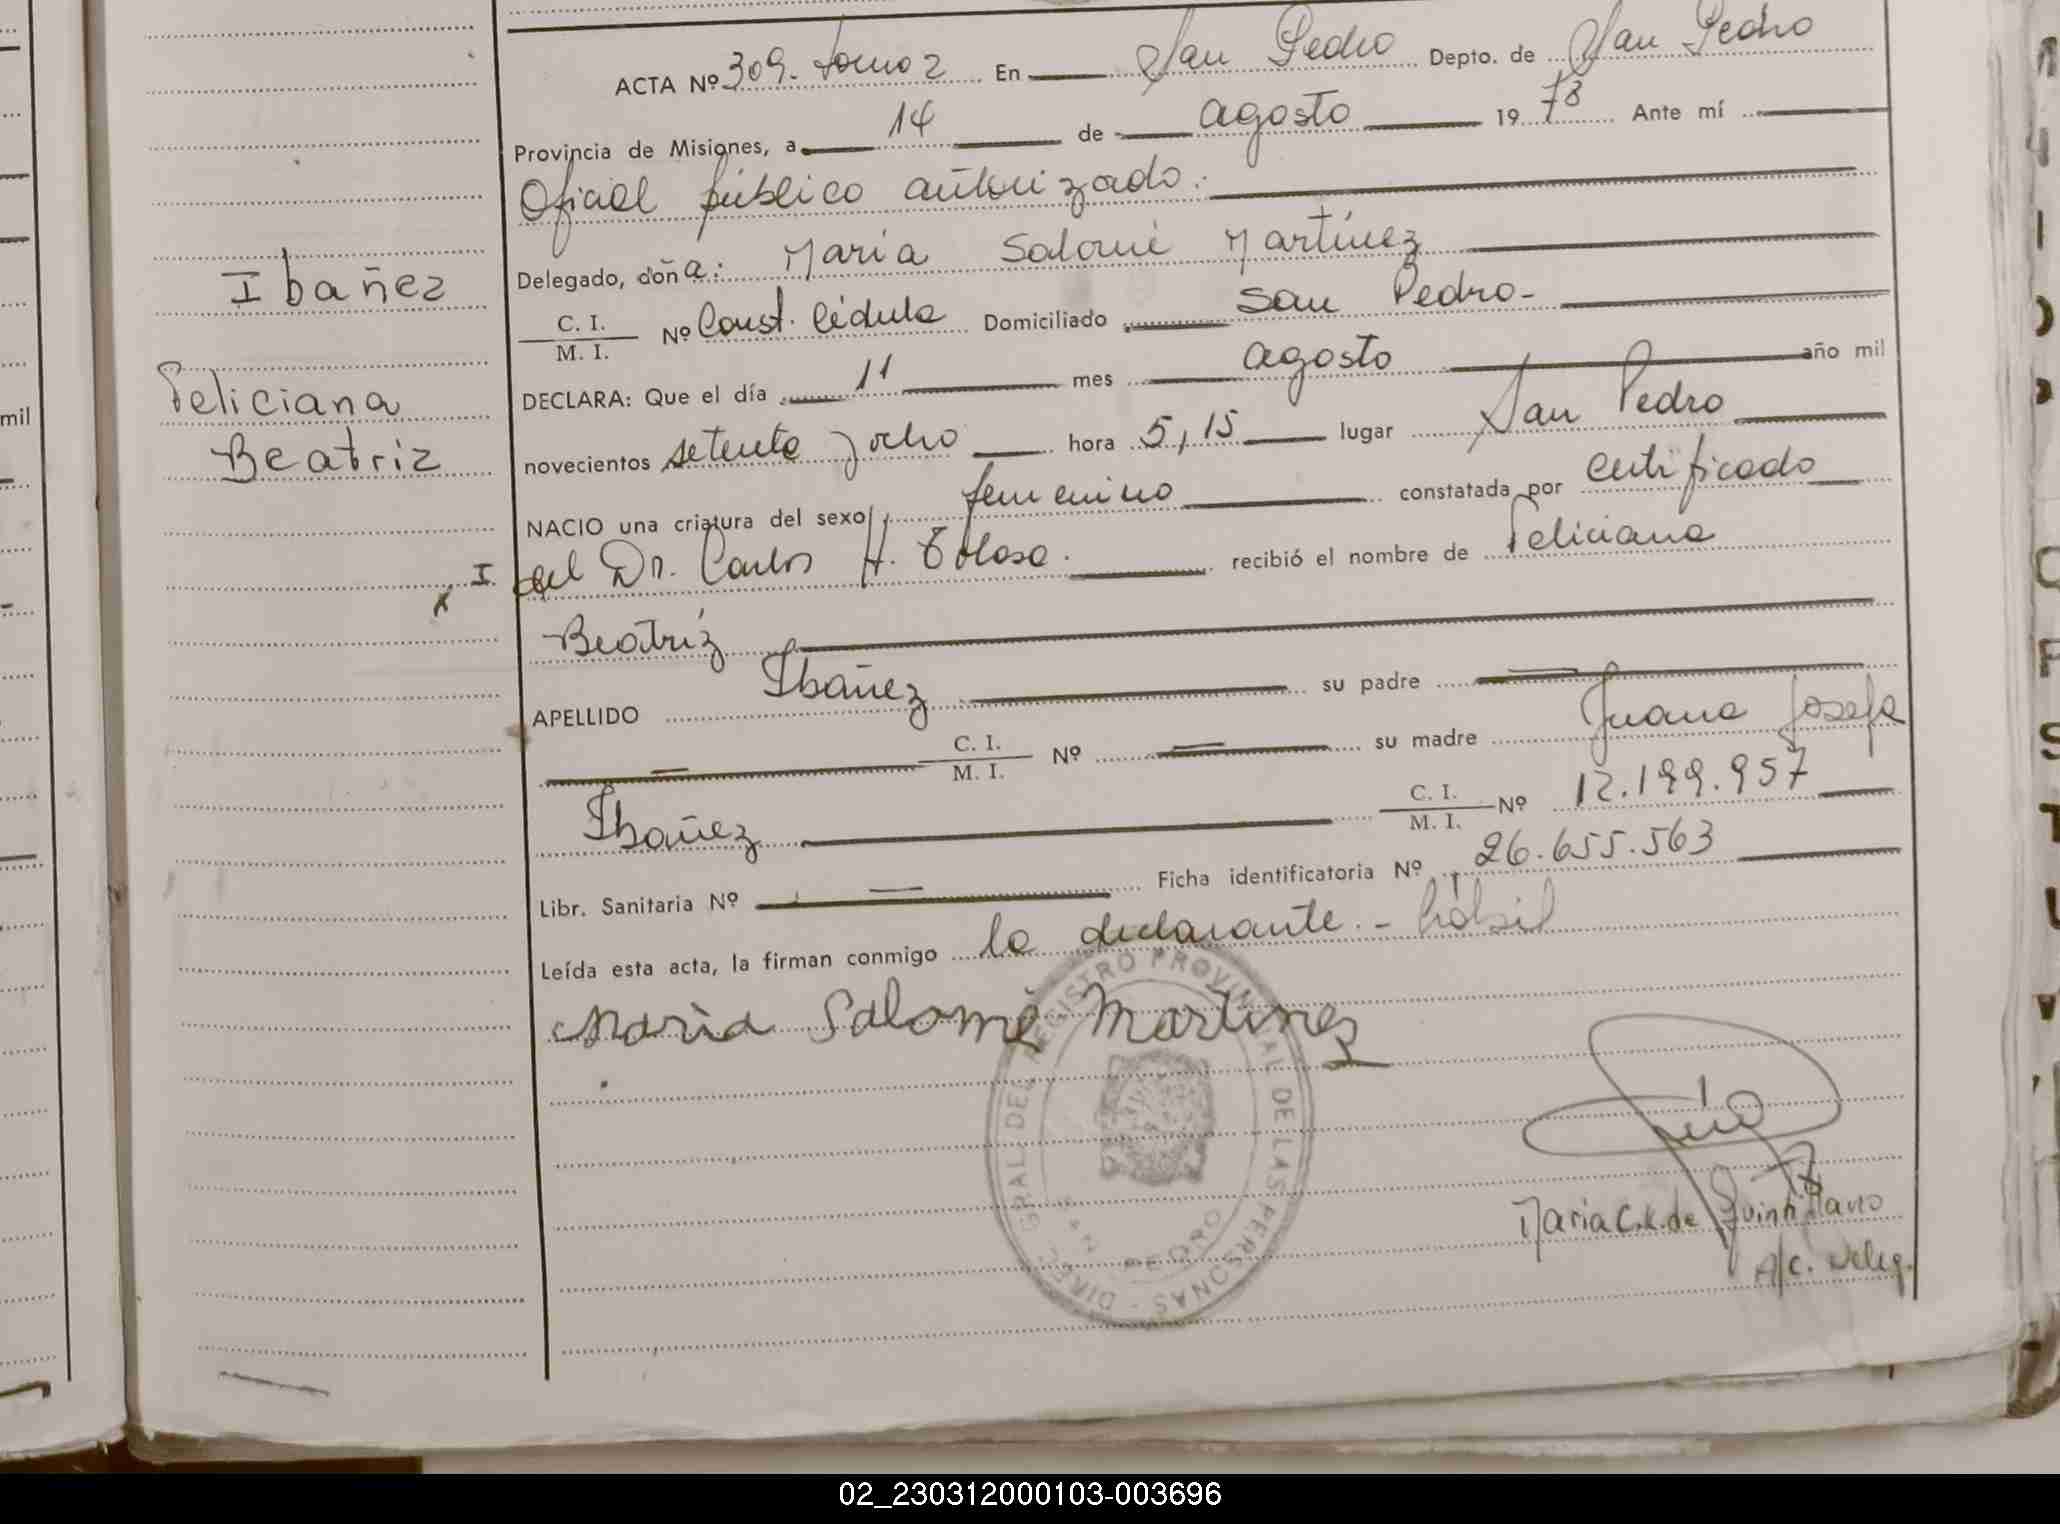 ACTA Nº 309. tomo 2 En San Pedro Depto. de San Pedro
Provincia de Misiones, a 14 de agosto 1978 Ante mí
Oficial público autorizado.
Delegado, doña: María Salomé Martínez
C. I.
M. I.
Nº Const. Cédula Domiciliado San Pedro-
DECLARA: Que el día 11 mes agosto año mil
novecientos setenta y ocho hora 5,15 lugar San Pedro
NACIO una criatura del sexo femenino constatada por certificado
del Dr. Carlos H. Tolosa. recibió el nombre de Feliciana
Beatriz
APELLIDO Ibañez su padre
C. I.
M. I.
Nº su madre Juana Josefa
Ibañez
C. I.
M. I.
Nº 12.199.957
Libr. Sanitaria Nº Ficha identificatoria Nº 26.655.563
Leída esta acta, la firman conmigo la declarante.- hábil
María Salomé Martinez
Ibañez
Feliciana
Beatriz
I
x
mil
DIREC. GRAL DEL REGISTRO PROVINCIAL DE LAS PERSONAS -
SAN PEDRO
Maria C.K. de Quintana
A/c. Deleg.
02_230312000103-003696